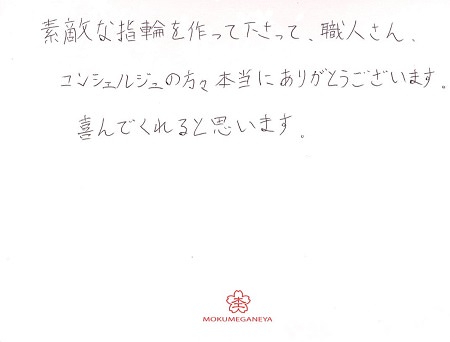 素敵な指輪を作って下さって、職人さん、
コンシェルジュの方々本当にありがとうございます。
喜んでくれると思います。
杢
MOKUMEGANEYA